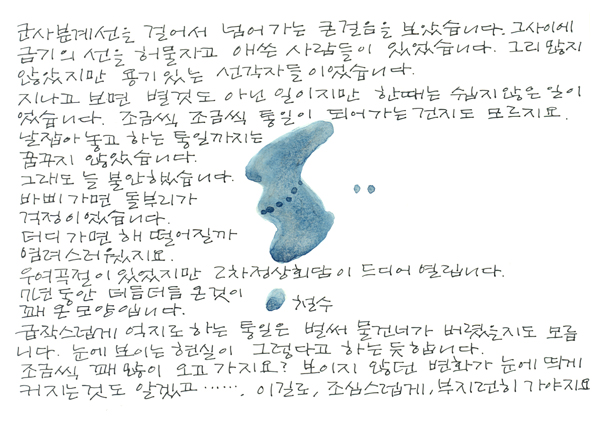 군사분계선을 걸어서 넘어가는 큰걸음을 보았습니다. 그사이에
금기의 선을 허물자고 애쓴 사람들이 있었습니다. 그리 많지
않았지만 용기있는 선각자들이었습니다.
지나고 보면 별것도 아닌 일이지만 한때는 쉽지않은 일이
었습니다. 조금씩 조금씩 통일이 되어가는건지도 모르지요.
날잡아놓고 하는 통일까지는
꿈꾸지 않았습니다.
그래도 늘 불안했습니다.
바삐가면 돌부리가
걱정이었습니다.
더디가면 해 떨어질까
염려스러웠지요.
우여곡절이 있었지만 2차정상회담이 드디어 열립니다.
7년동안 더듬더듬 온것이
꽤 온 모양입니다.
철수
급작스럽게 억지로 하는 통일은 벌써 물건너가 버렸을지도 모릅
니다. 눈에 보이는 현실이 그렇다고 하는듯합니다.
조금씩 꽤 많이 오고 가지요? 보이지 않던 변화가 눈에 띄게
커지는것도 알겠고 ‥‥‥. 이길로, 조심스럽게, 부지런히 가야지요